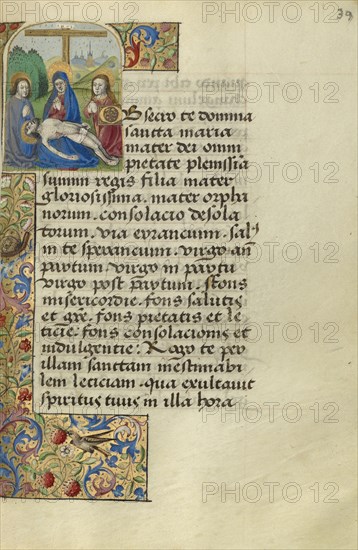 39
Obsecro te domina
sancta maria
mater dei omni
pietate plenissia
summi regis filia mater
gloriosissima. mater orpha
norum. consolacio desola
torum. via errancium. sal9
in te sperancium. virgo an
partum. virgo in partu
virgo post partum. fons
misericordie. fons salutis
et gre. fons pietatis et le
ticie. fons consolacionis et
indulgentie. Rogo te per
illam sanctam inestimabi
lem leticiam. qua exultauit
spiritus tuus in illa hora
PHOTO12